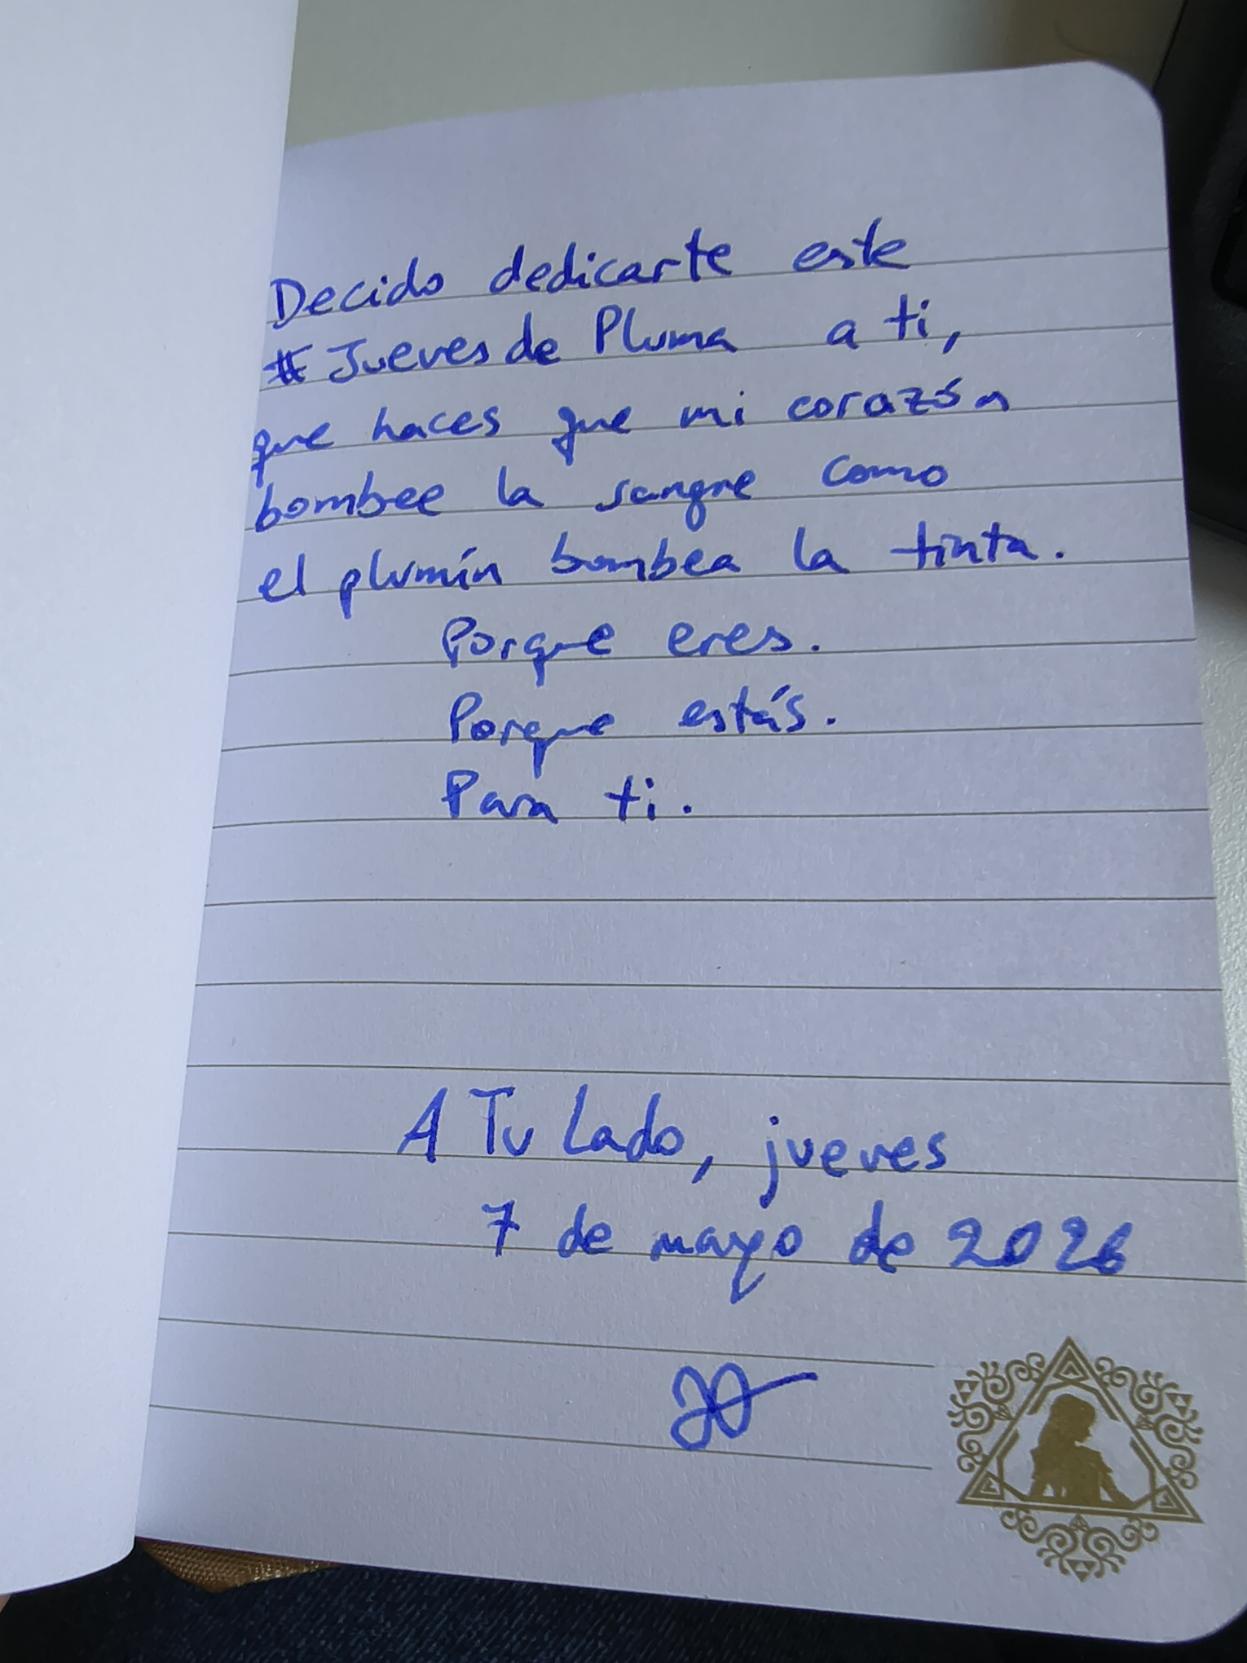 Decido dedicarte este
#Jueves de Pluma a ti,
que haces que mi corazón
bombee la sangre como
el plumín bombea la tinta.
Porque eres.
Porque estás.
Para ti.
A Tu Lado, jueves
7 de mayo de 2026